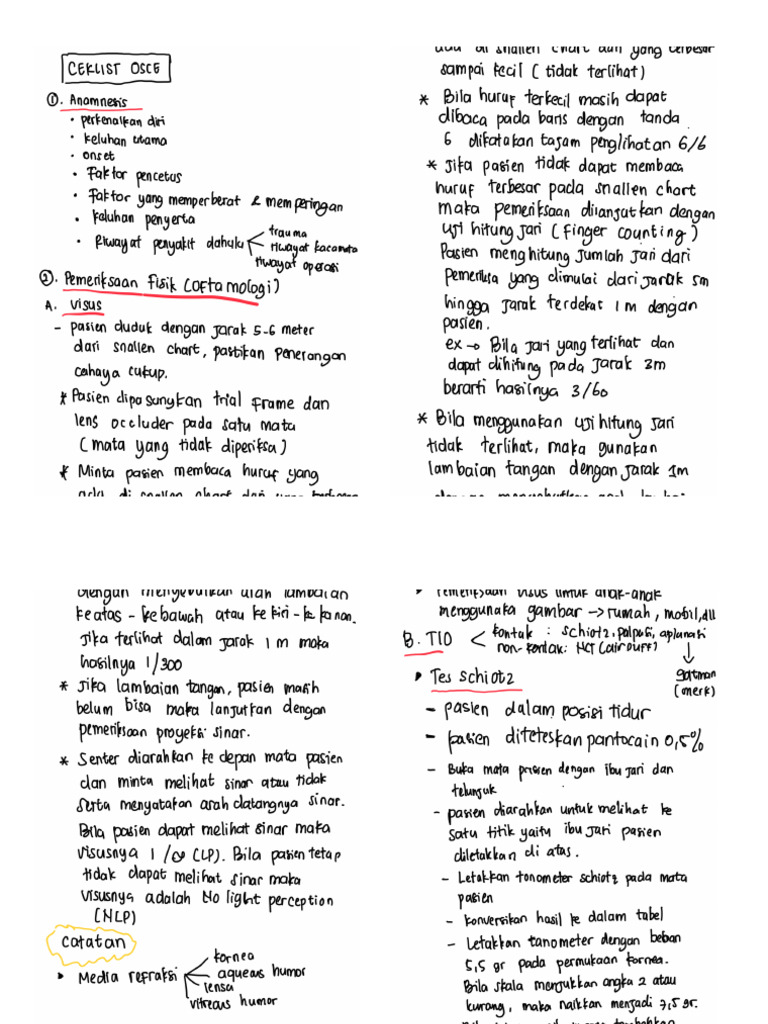 CEKLIST OSCE
①. Anamnesis
• perkenalkan diri
• keluhan utama
• onset
• Faktor pencetus
• Faktor yang memperberat & memperingan
• keluhan penyerta
• Riwayat penyakit dahulu
trauma
riwayat kacamata
riwayat operasi
②. Pemeriksaan Fisik (oftamologi)
A. Visus
- pasien duduk dengan jarak 5-6 meter
dari snallen chart, pastikan penerangan
cahaya cukup.
* Pasien dipasangkan trial frame dan
lens occluder pada satu mata
(mata yang tidak diperiksa)
* Minta pasien membaca huruf yang
ada di snallen chart dari yang terbesar
sampai kecil (tidak terlihat)
* Bila huruf terkecil masih dapat
dibaca pada baris dengan tanda
6 dikatakan tajam penglihatan 6/6
* Jika pasien tidak dapat membaca
huruf terbesar pada snallen chart
maka pemeriksaan dilanjutkan dengan
uji hitung jari (finger counting)
Pasien menghitung jumlah jari dari
pemeriksa yang dimulai dari jarak 5m
hingga jarak terdekat 1m dengan
pasien.
ex → Bila jari yang terlihat dan
dapat dihitung pada jarak 3m
berarti hasilnya 3/60
* Bila menggunakan uji hitung jari
tidak terlihat, maka gunakan
lambaian tangan dengan jarak 1m
dengan menyebutkan arah lambaian
keatas - kebawah atau ke kiri - ke kanan.
Jika terlihat dalam jarak 1 m maka
hasilnya 1/300
* Jika lambaian tangan, pasien masih
belum bisa maka lanjutkan dengan
pemeriksaan proyeksi sinar.
* Senter diarahkan ke depan mata pasien
dan minta melihat sinar atau tidak
serta menyatakan arah datangnya sinar.
Bila pasien dapat melihat sinar maka
visusnya 1/∞ (LP). Bila pasien tetap
tidak dapat melihat sinar maka
visusnya adalah No light perception
(NLP)
catatan
• Media refraksi
kornea
aqueous humor
lensa
vitreous humor
• Pemeriksaan visus untuk anak-anak
menggunaka gambar → rumah, mobil, dll
B. TIO
kontak : schiotz, palpasi, aplanasi
non-kontak: NCT (air puff)
↓
(merk)
• Tes Schiotz
- pasien dalam posisi tidur
- pasien diteteskan pantocain 0,5%
- Buka mata pasien dengan ibu jari dan
telunjuk
- pasien diarahkan untuk melihat ke
satu titik yaitu ibu jari pasien
diletakkan di atas.
- Letakkan tonometer schiotz pada mata
pasien
- konversikan hasil ke dalam tabel
- Letakkan tanometer dengan beban
5,5 gr pada permukaan kornea.
Bila skala menjukkan angka 2 atau
kurang, maka naikkan menjadi 7,5 gr.